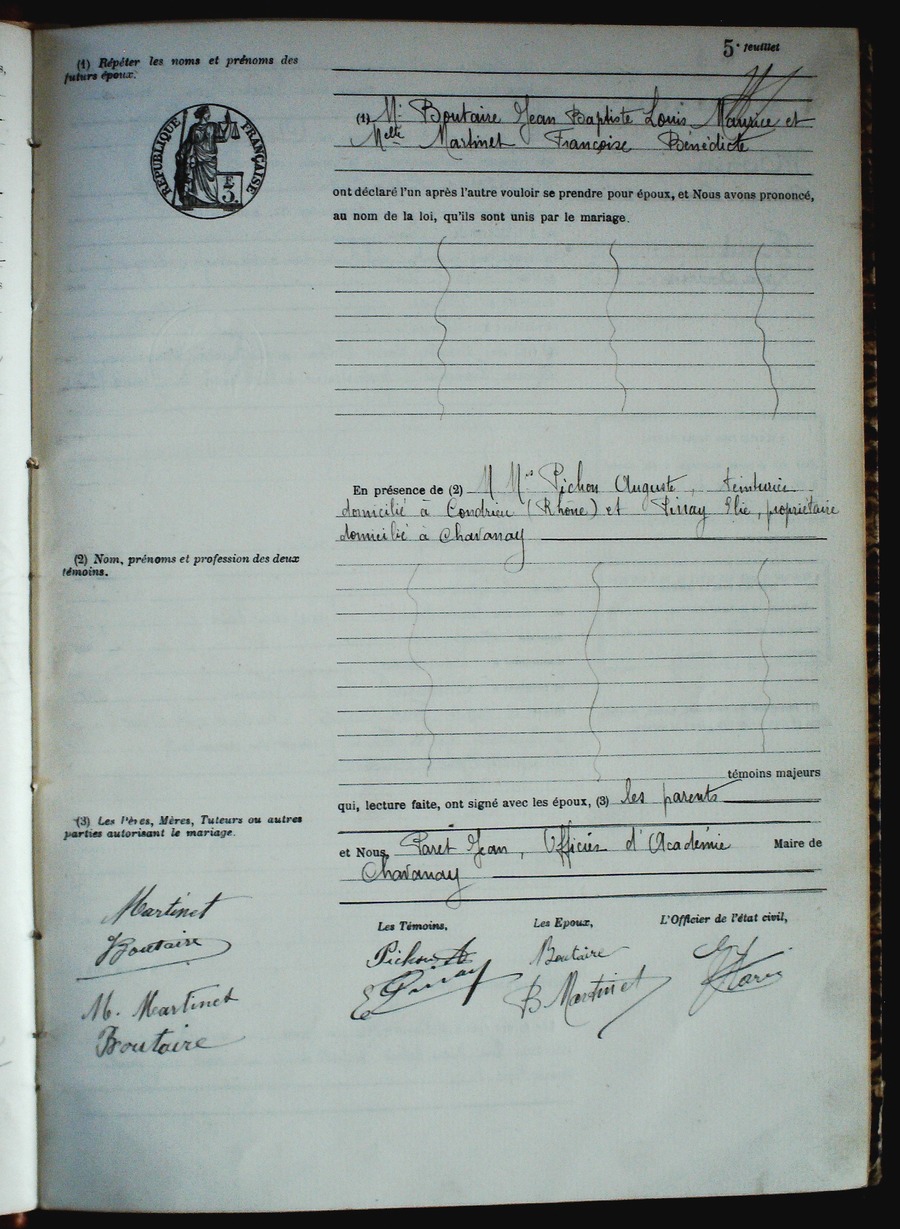 5e feuillet
(1) Répéter les noms et prénoms des
futurs époux.
RÉPUBLIQUE FRANÇAISE
E
3
(1) Mr Boutaire Jean Baptiste Louis Maurice et
Melle Martinet Françoise Bénédicte
ont déclaré l'un après l'autre vouloir se prendre pour époux, et Nous avons prononcé,
au nom de la loi, qu'ils sont unis par le mariage.
En présence de (2) M Mrs Pichon Auguste, teinturier
domicilié à Condrieu (Rhône) et Pinay Elie, propriétaire
domicilié à Chavanay
(2) Nom, prénoms et profession des deux
témoins.
témoins majeurs
qui, lecture faite, ont signé avec les époux, (3) les parents
(3) Les Pères, Mères, Tuteurs ou autres
parties autorisant le mariage.
et Nous, Paret Jean, Officier d'Académie Maire de
Chavanay
Les Témoins, Les Epoux, L'Officier de l'état civil,
Martinet
Boutaire
M. Martinet
Boutaire
Pichon A
E Pinay
Boutaire
B Martinet